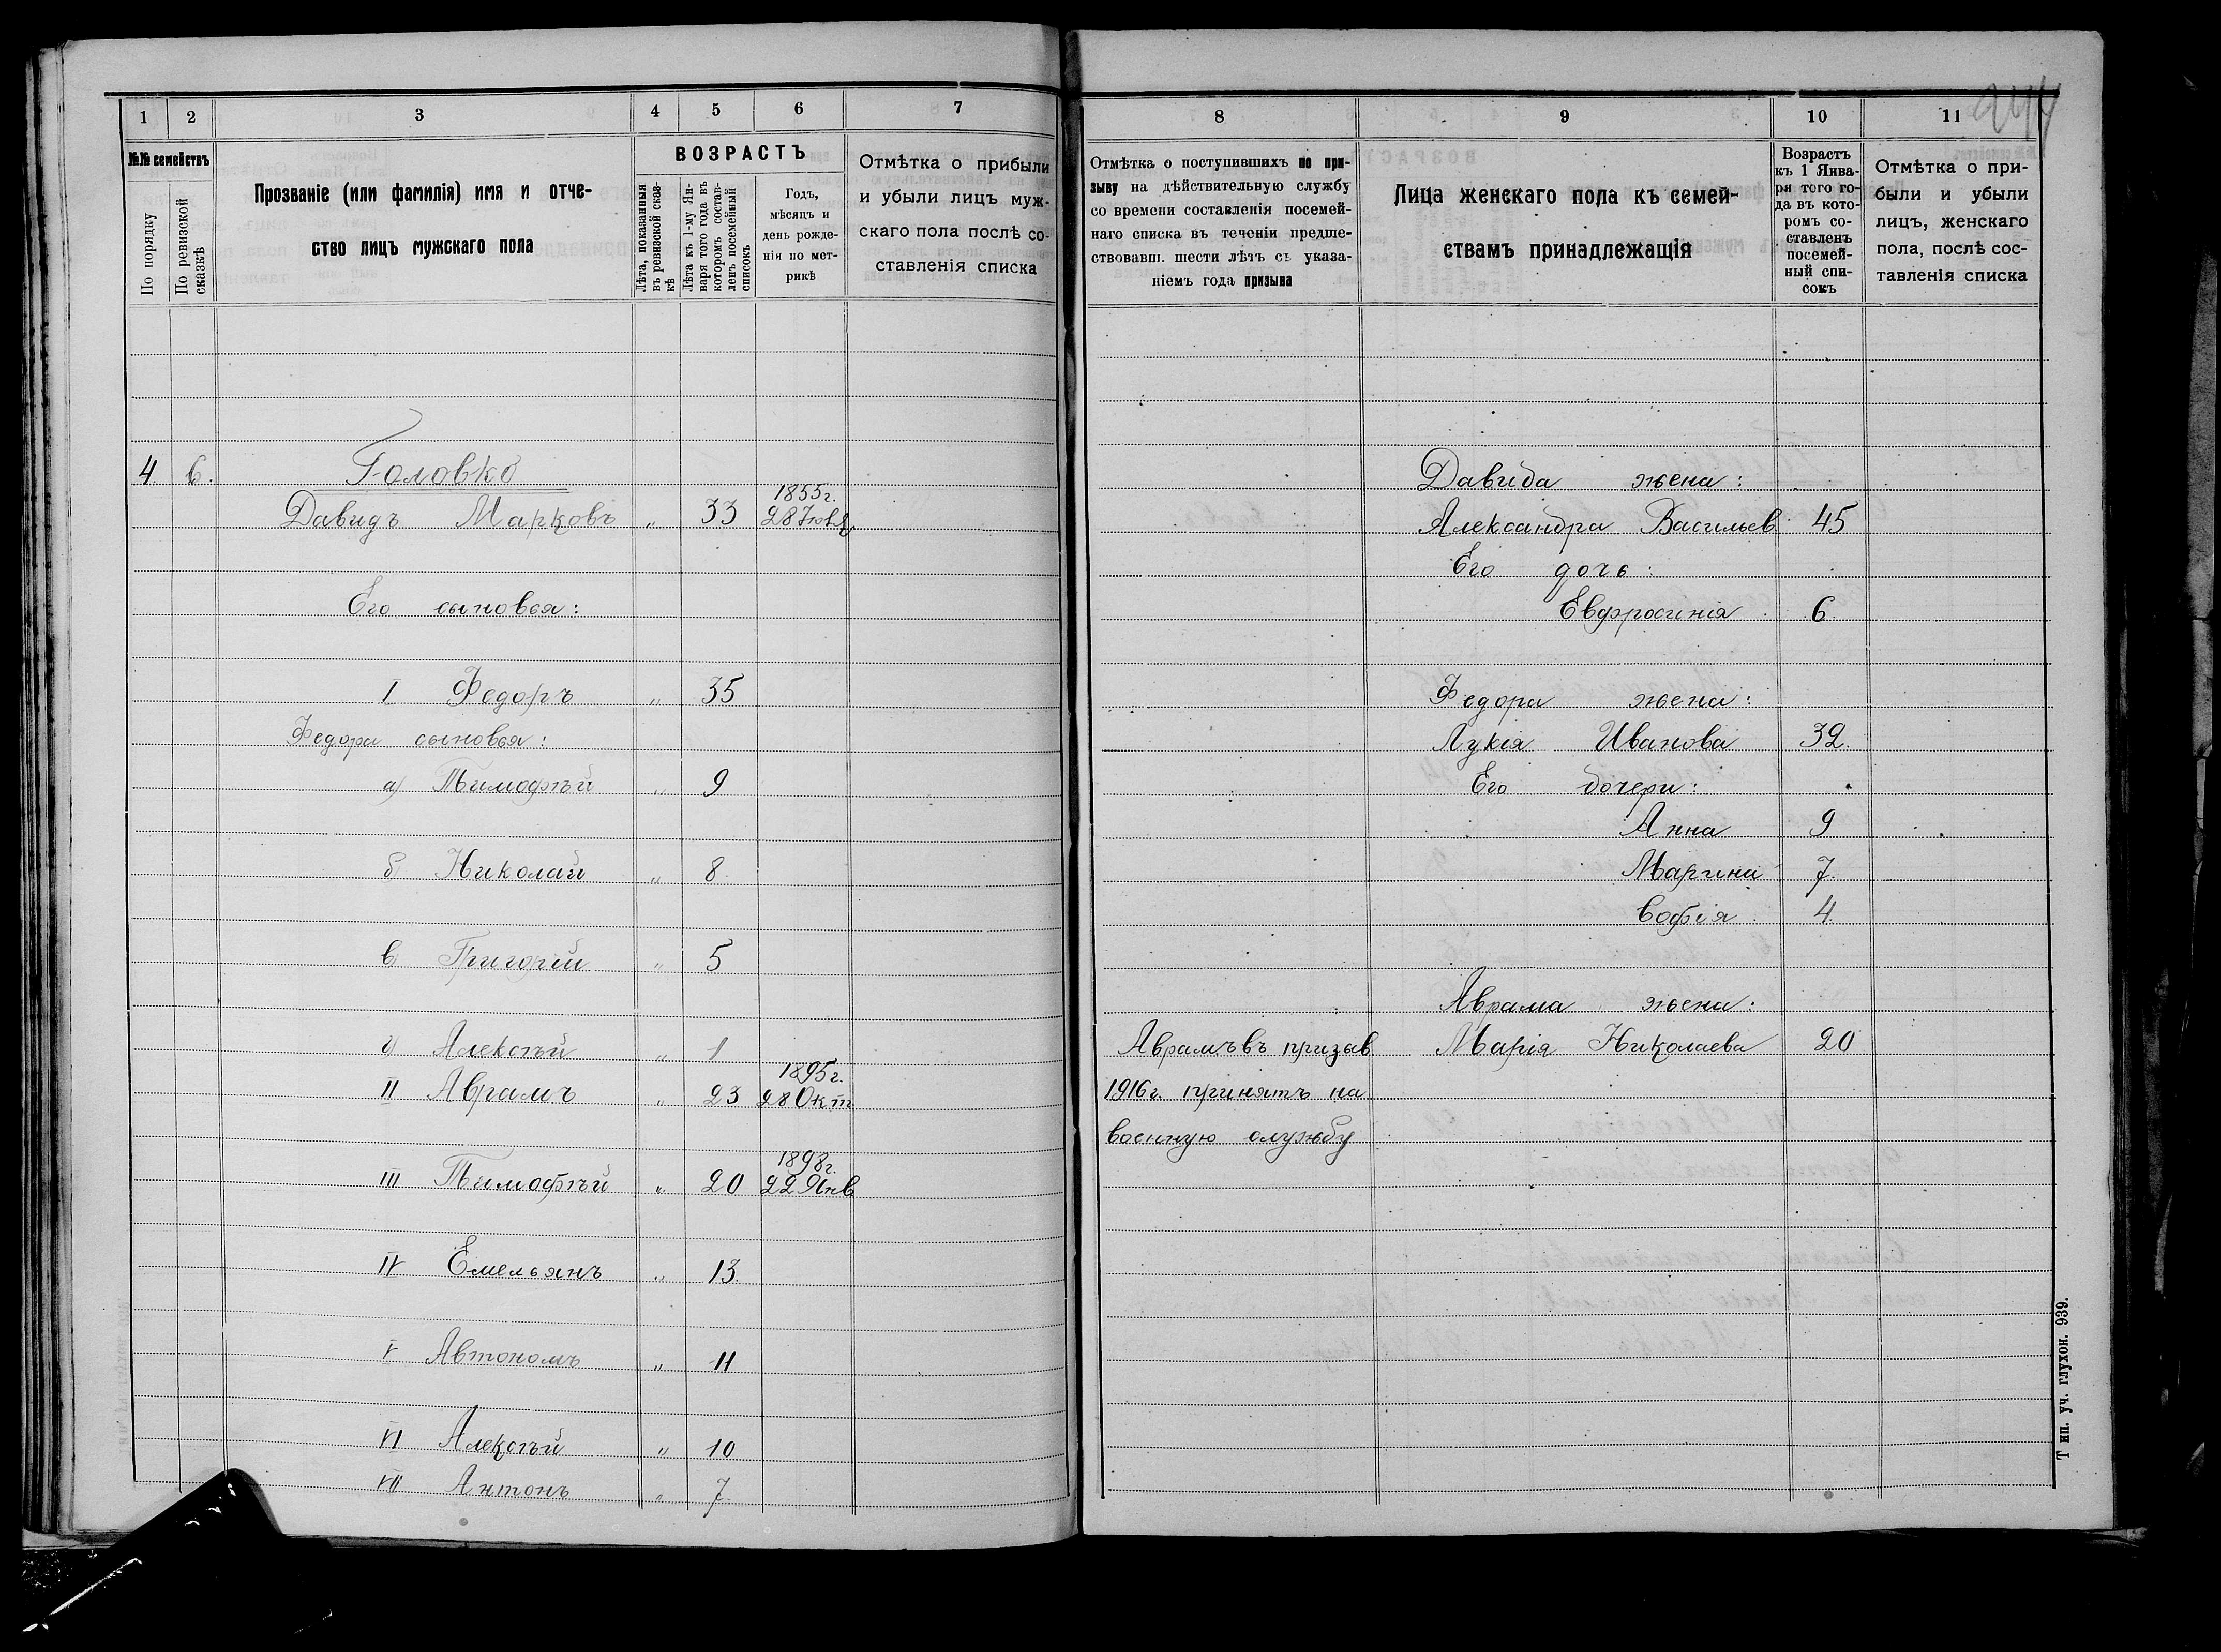 244
1 2 3 4 5 6 7
№№ семействъ
По порядку
По ревизской сказкѣ
Прозваніе (или фамилія) имя и отче-
ство лицъ мужскаго пола
ВОЗРАСТЪ
Лѣта, показанныя
въ ревизской сказ-
кѣ
Лѣта къ 1-му Ян-
варя того года въ
которомъ состав-
ленъ посемейный
списокъ
Годъ,
мѣсяцъ и
день рожде-
нія по мет-
рикѣ
Отмѣтка о прибыли
и убыли лицъ муж-
скаго пола послѣ со-
ставленія списка
4 6. Головко
1855г.
Давидъ Марковъ „ 33 28 Іюня
Его сыновья:
I Федоръ „ 35
Федора сыновья:
а) Тимофѣй „ 9
б) Николай „ 8
в) Григорій „ 5
г) Алексѣй „ 1
1895г.
II Аврамъ „ 23 28 Окт
1898г.
III Тимофѣй „ 20 22 Янв
IV Емельянъ „ 13
V Автономъ „ 11
VI Алексѣй „ 10
VII Антонъ „ 7
8 9 10 11
Отмѣтка о поступившихъ по при-
зыву на дѣйствительную службу
со времени составленія посемей-
наго списка въ теченіи предше-
ствовавш. шести лѣтъ съ указа-
ніемъ года призыва
Лица женскаго пола къ семей-
ствамъ принадлежащія
Возрастъ
къ 1 Янва-
ря того го-
да въ кото-
ромъ со-
ставленъ
посемей-
ный спи-
сокъ
Отмѣтка о при-
были и убыли
лицъ, женскаго
пола, послѣ сос-
тавленія списка
Давида жена:
Александра Васильев 45
Его дочь:
Евфросинія 6
Федора жена:
Лукія Иванова 32.
Его дочери:
Анна 9
Марина 7.
Софія 4.
Аврама жена:
Аврамъ въ призыв Марія Николаева 20
1916г. принятъ на
военную службу
Тип. уч. глухон. 939.